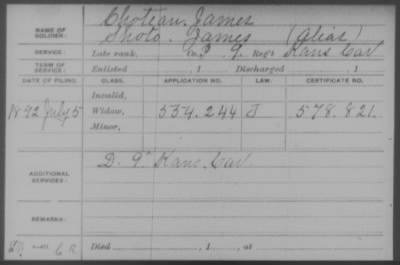 Choteau, James
NAME OF SOLDIER: Shoto, James (Alias)
SERVICE: Late rank, Co. 9 Reg't Kans Cav
TERM OF SERVICE: Enlisted , 1 Discharged , 1
DATE OF FILING. CLASS. APPLICATION NO. LAW. CERTIFICATE NO.
Invalid,
1892 July 5 Widow, 554.244 J 578.821.
Minor,
ADDITIONAL SERVICES: D. 9" Kans. Cav
REMARKS:
Died , 1 , at